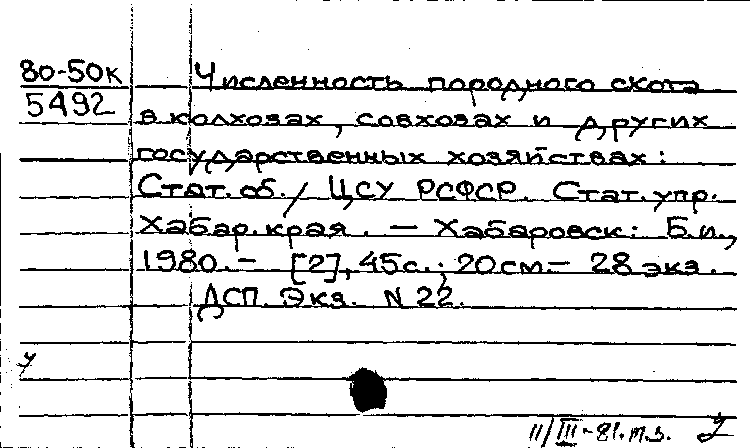 80-50к
5492
Численность породного скота
в колхозах, совхозах и других
государственных хозяйствах:
Стат. об. / ЦСУ РСФСР. Стат. упр.
Хабар. края. — Хабаровск: Б.и.,
1980. — [2], 45с.; 20см. — 28 экз.
ДСП. Экз. N 22.
у
11/III-81. т.з. у